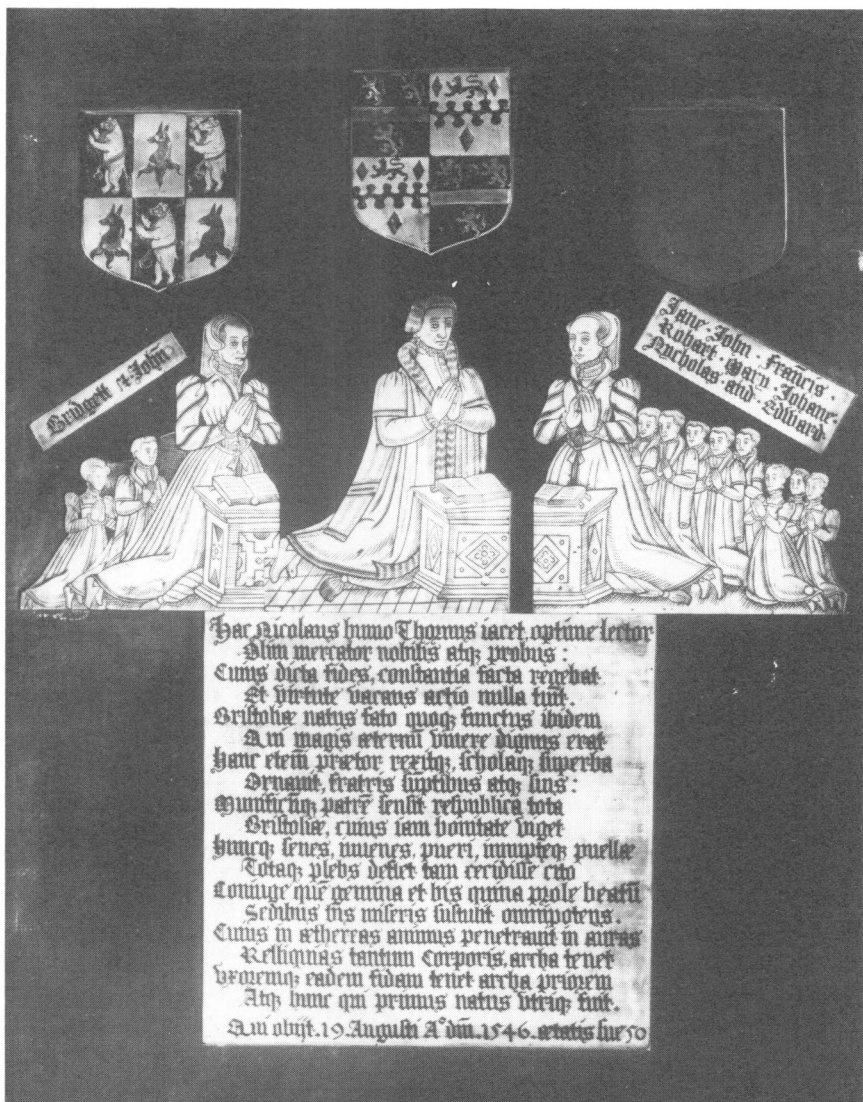 Bridgett & John
Jane · John · Francis ·
Robart · Mary · Johane ·
Nycholas · and · Edward ·
Hac Nicolaus humo Thornus iacet, optime lector
Olim mercator nobilis atq; probus :
Cuius dicta fides, constantia facta regebat
Et virtute vacans actio nulla fuit.
Bristoliæ natus fato quoq; functus ibidem
Qui magis æternū vivere dignus erat
Hanc etem̄ prætor rexitq;, scholaq; superba
Ornavit, fratris sūptibus atq; suis :
Munificūq; patrē sensit respublica tota
Bristoliæ, cuius iam bonitate viget
Huncq; senes, iuvenes, pueri, innupteq; puellæ
Totaq; plebs deflet tam cecidisse cito
Coniuge quē gemina et bis quina prole beatū
Sedibus his miseris sustulit omnipotens.
Cuius in æthereas animus penetravit in auras
Relliquias tantum corporis, archa tenet
Vxoremq; eadem fidam tenet archa priorem
Atq; hunc qui primus natus vtriq; fuit.
Qui obijt. 19. Augusti A° dm̄. 1546. ætatis sue 50